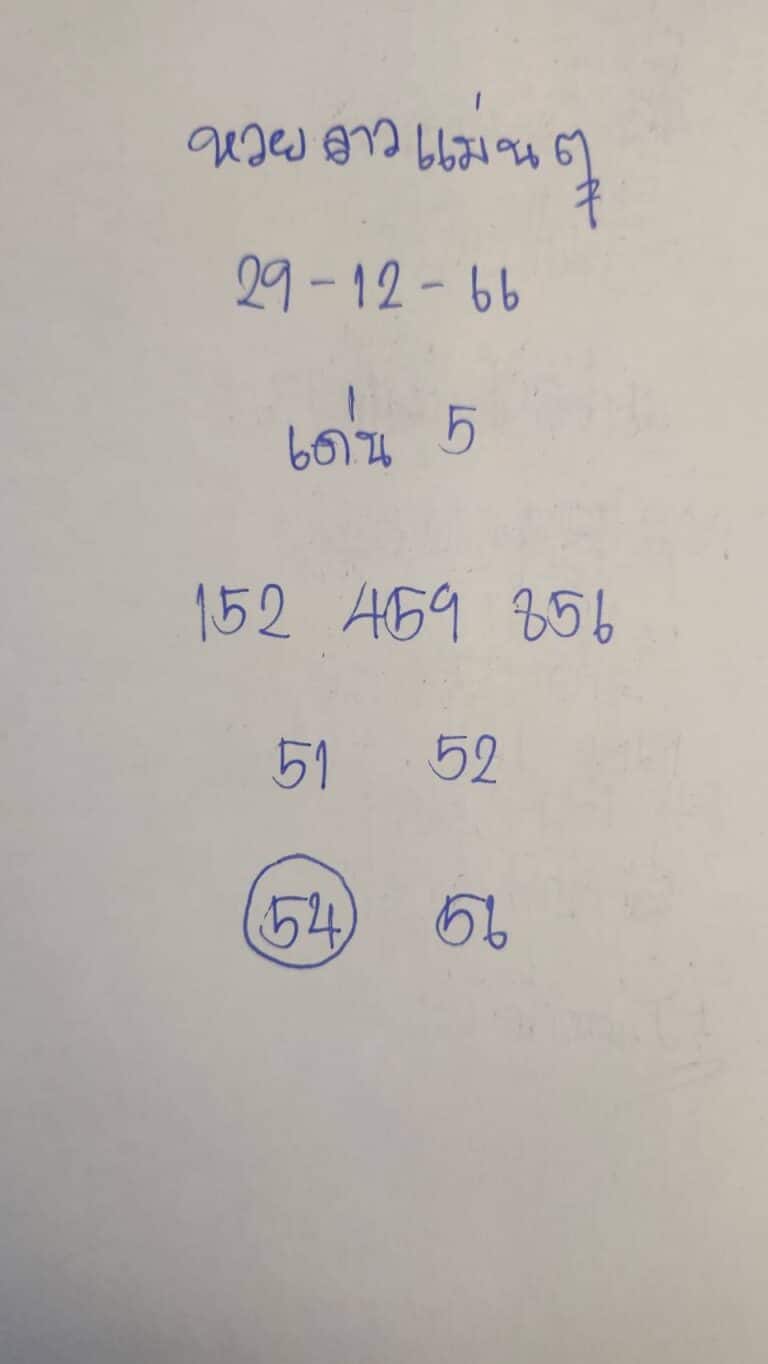 หวยลาวแม่นๆ
29-12-66
เด่น 5
152 459 856
51 52
54 56